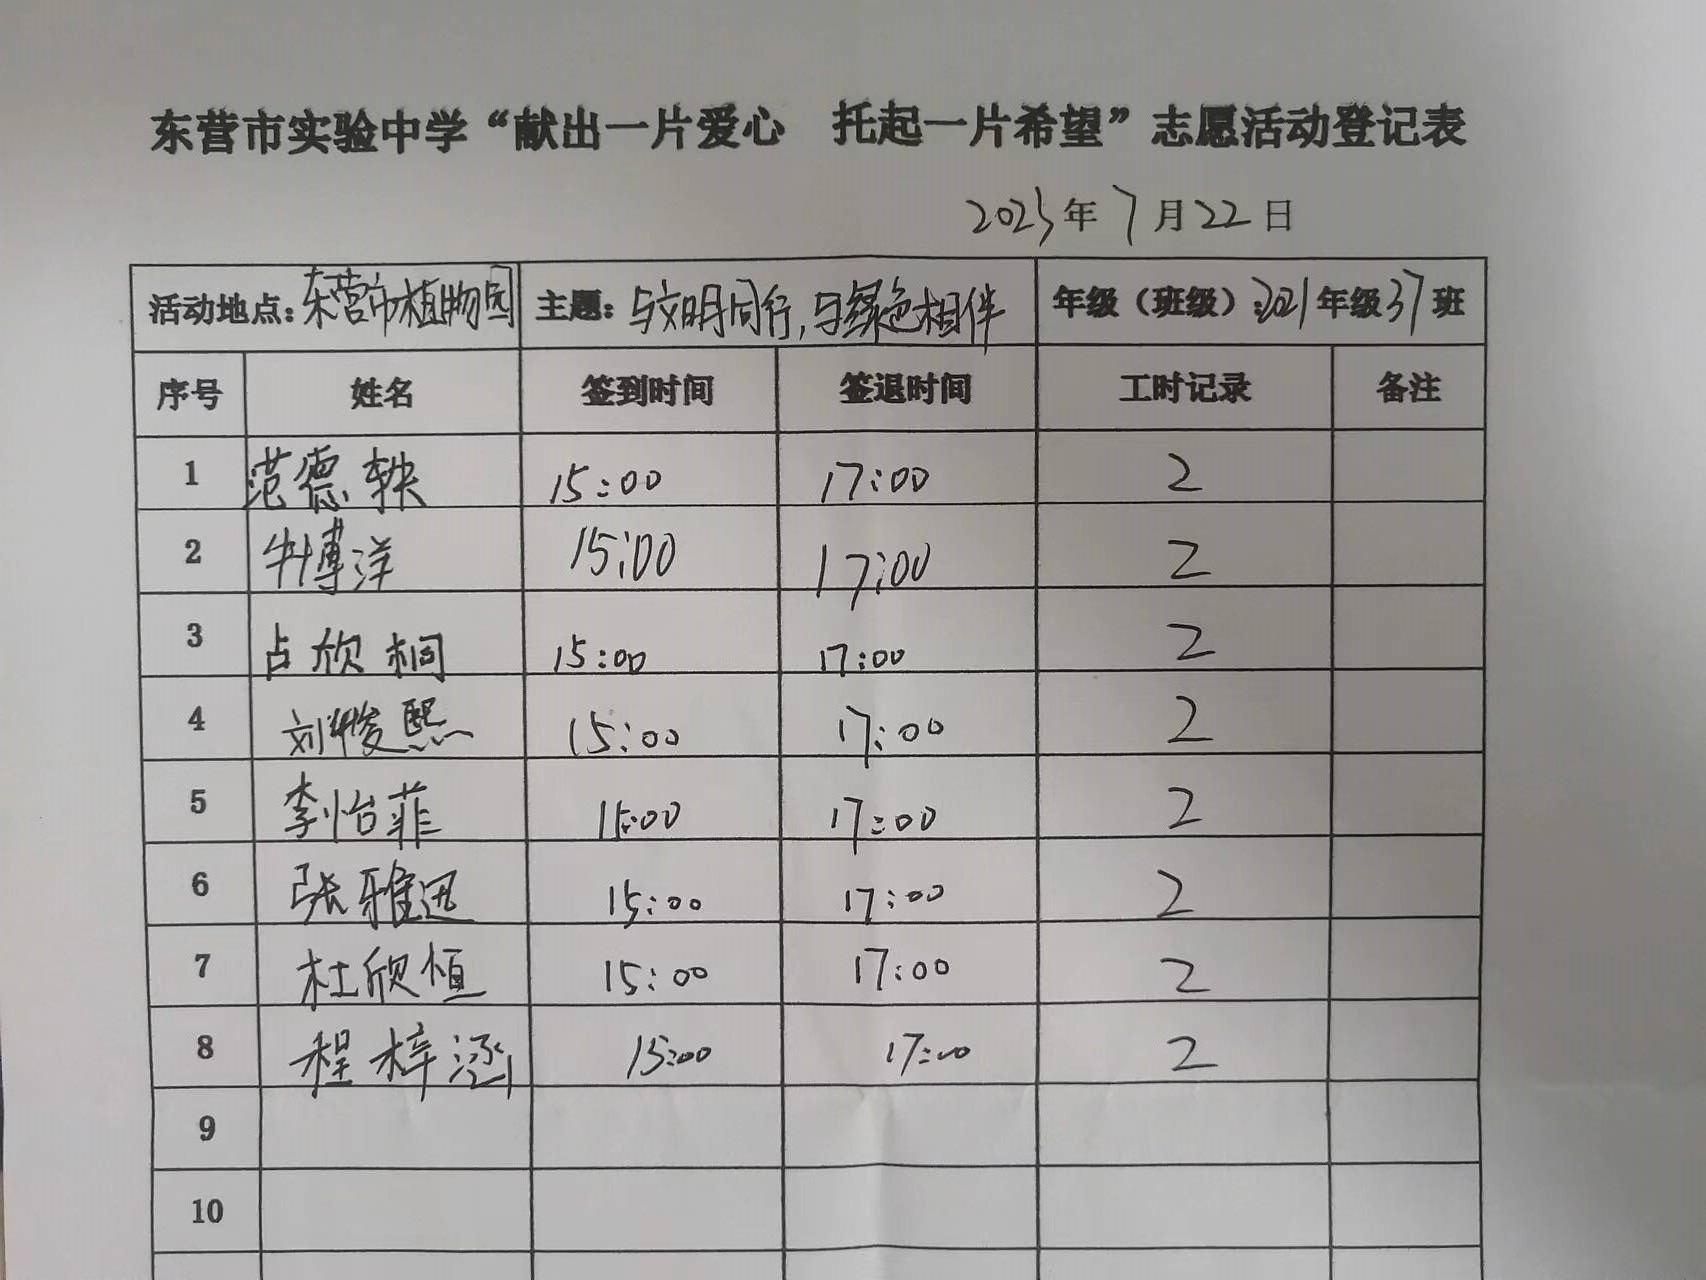 东营市实验中学“献出一片爱心 托起一片希望”志愿活动登记表
2023年7月22日
活动地点:东营市植物园 主题:与文明同行,与绿色相伴 年级(班级):2021年级37班
序号 姓名 签到时间 签退时间 工时记录 备注
1 范德轶 15:00 17:00 2
2 牛博洋 15:00 17:00 2
3 占欣桐 15:00 17:00 2
4 刘峻熙 15:00 17:00 2
5 李怡菲 15:00 17:00 2
6 张雅迅 15:00 17:00 2
7 杜欣恒 15:00 17:00 2
8 程梓涵 15:00 17:00 2
9
10